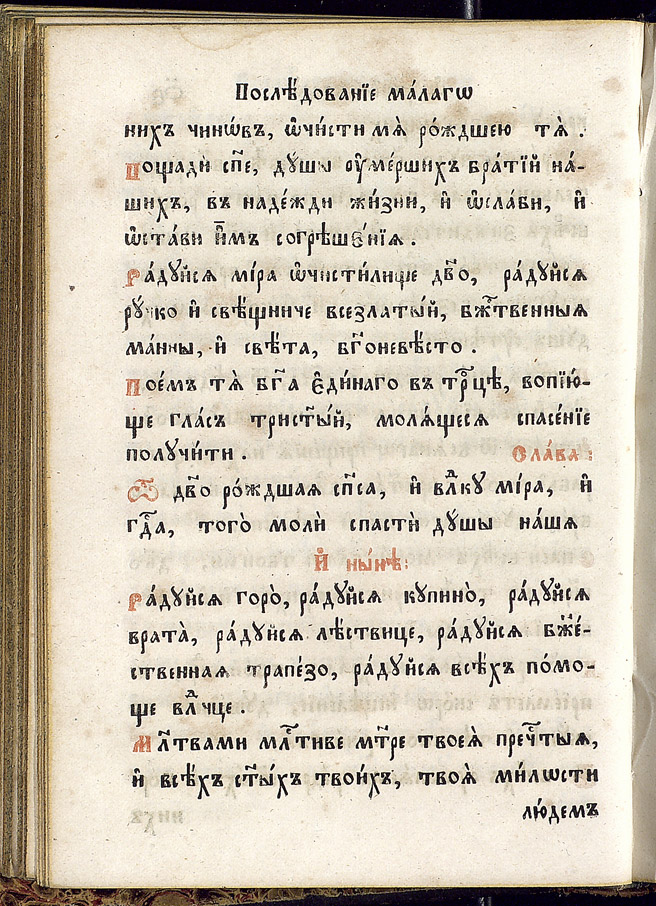 Послѣ́дованїе ма́лагѡ
нихъ чинѡ́въ, ѡ҆чи́сти мѧ̀ ро́ждшею тѧ̀ .
Пощадѝ сп҃се, дꙋ́шы ᲂу҆ме́ршихъ бра́тїй на́-
шихъ, въ наде́жди жи́зни, и҆ ѡ҆сла́би, и҆
ѡ҆ста́ви и҆̀мъ согрѣше́нїѧ .
Ра́дꙋйсѧ мі́ра ѡ҆чисти́лище дв҃о, ра́дꙋйсѧ
рꙋ́чко и҆ свѣ́щниче всезлаты́й, бж҃твенныѧ
ма́нны, и҆ свѣ́та, бг҃оневѣ́сто .
Пое́мъ тѧ̀ бг҃а є҆ди́наго въ трⷪ҇цѣ, вопїю́-
ще гла́съ трист҃ы́й, молѧ́щесѧ спасе́нїе
получи́ти . Сла́ва :
Ѿ дв҃о ро́ждшаѧ сп҃са, и҆ влⷣкꙋ мі́ра, и҆
гдⷭ҇а, того̀ молѝ спастѝ дꙋ́шы на́шѧ
И҆ ны́нѣ :
Ра́дꙋйсѧ горо̀, ра́дꙋйсѧ кꙋпино̀, ра́дꙋйсѧ
врата̀, ра́дꙋйсѧ лѣ́ствице, ра́дꙋйсѧ бж҃е́-
ственнаѧ трапе́зо, ра́дꙋйсѧ всѣ́хъ по́мо-
ще влⷣчце .
Мл҃твами млⷭ҇тиве мт҃ре твоеѧ̀ пречⷭ҇тыѧ,
и҆ всѣ́хъ ст҃ы́хъ твои́хъ, твоѧ̀ ми́лѡсти
лю́демъ